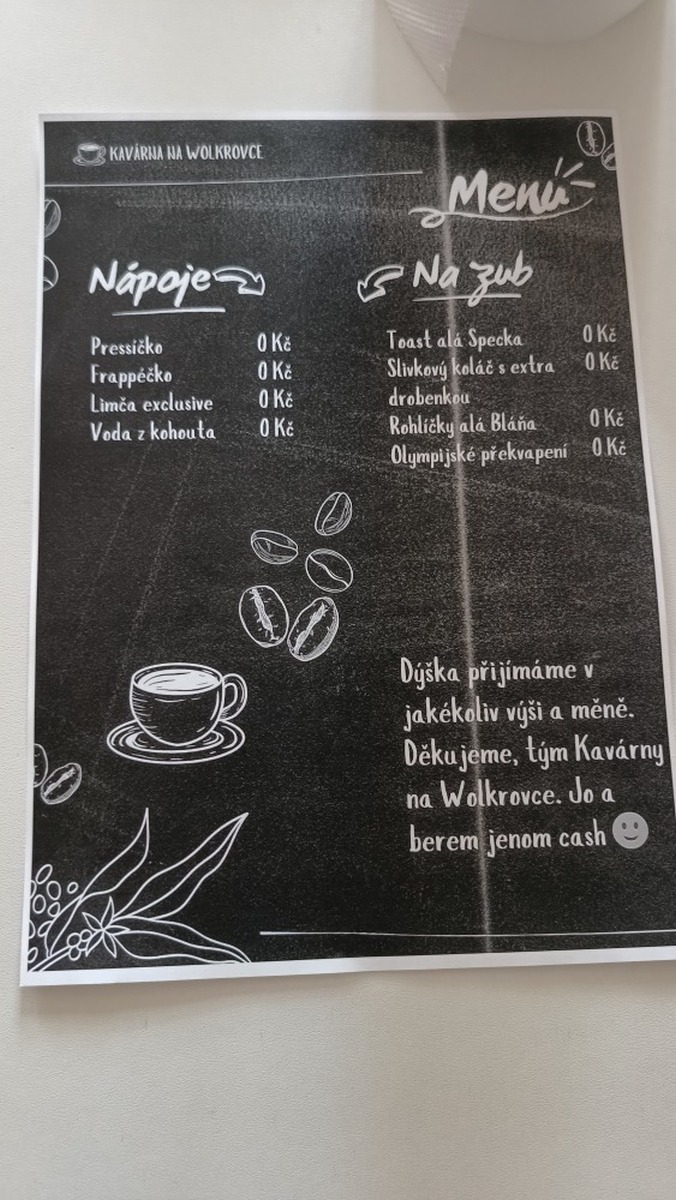 KAVÁRNA NA WOLKROVCE
Menu
Nápoje
Pressíčko 0 Kč
Frappéčko 0 Kč
Limča exclusive 0 Kč
Voda z kohouta 0 Kč
Na zub
Toast alá Specka 0 Kč
Slivkový koláč s extra 0 Kč
drobenkou
Rohlíčky alá Bláňa 0 Kč
Olympijské překvapení 0 Kč
Dýška přijímáme v
jakékoliv výši a méně.
Děkujeme, tým Kavárny
na Wolkrovce. Jo a
berem jenom cash 🙂